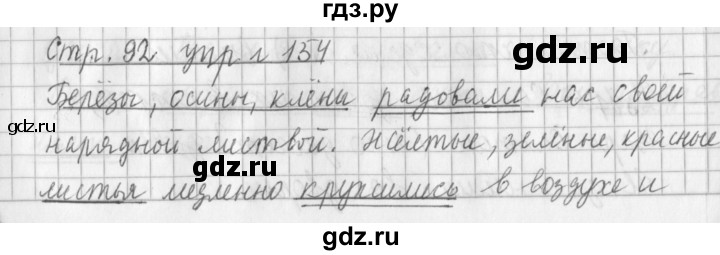 гдз.ру
Стр. 92 упр г 154
Берёзы, осины, клёны радовали нас своей
gdz.ru
gdz.ru
нарядной листвой. Жёлтые, зелёные, красные
листья медленно кружились в воздухе и
gdz.ru
gdz.ru